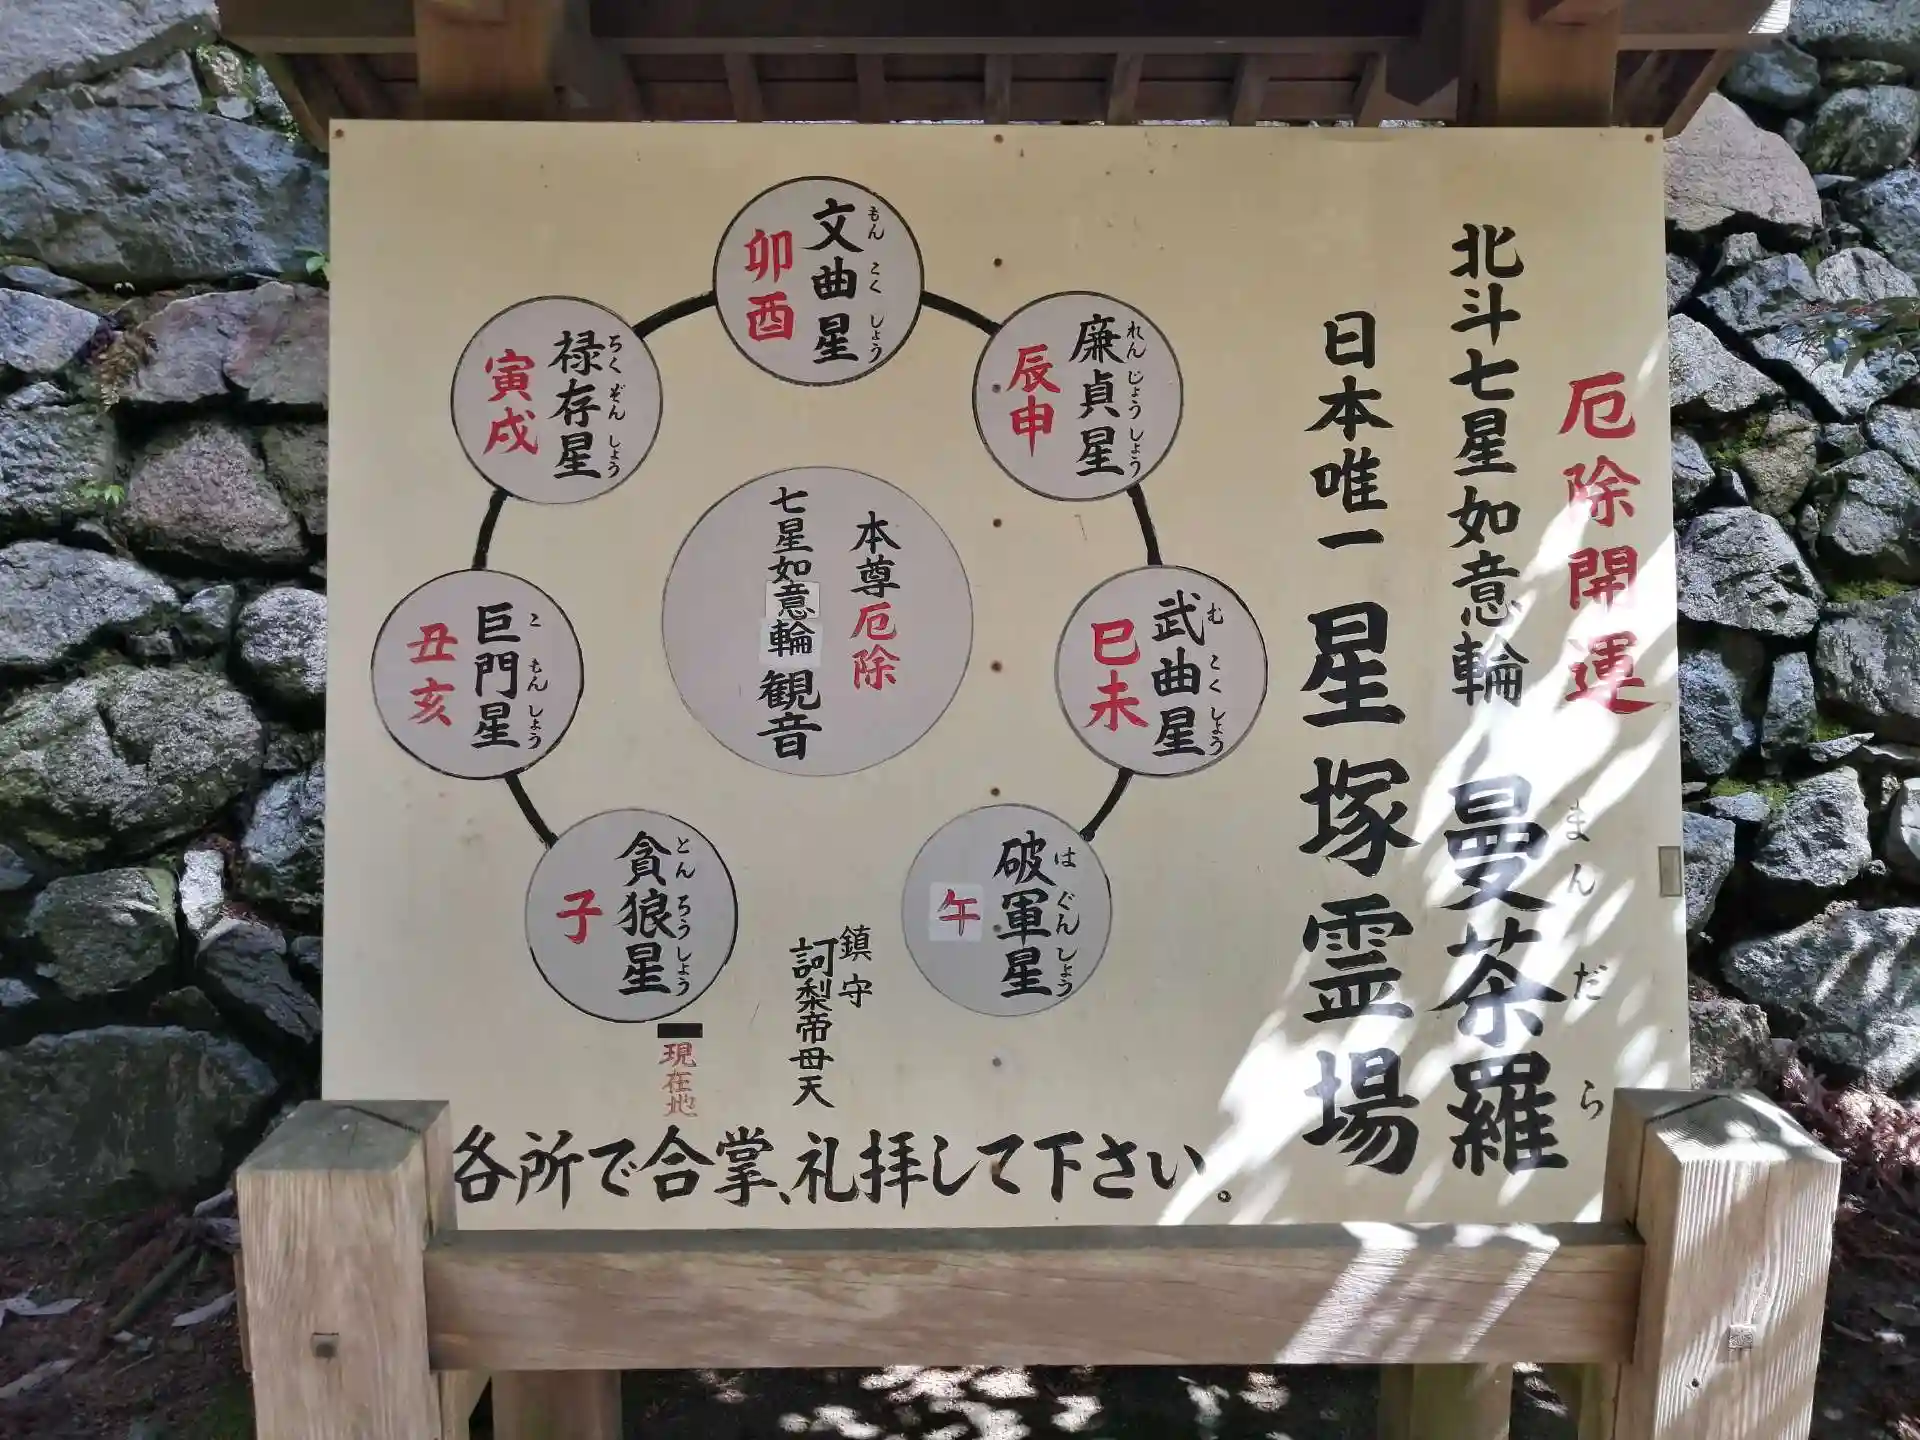 厄除開運
北斗七星如意輪 曼荼羅
まんだら
日本唯一 星塚霊場
文曲星
もんこくしょう
卯酉
廉貞星
れんじょうしょう
辰申
禄存星
ろくぞんしょう
寅戌
武曲星
むこくしょう
巳未
本尊厄除
七星如意輪観音
巨門星
こもんしょう
丑亥
破軍星
はぐんしょう
午
貪狼星
とんろうしょう
子
鎮守
訶梨帝母天
現在地
各所で合掌、礼拝して下さい。